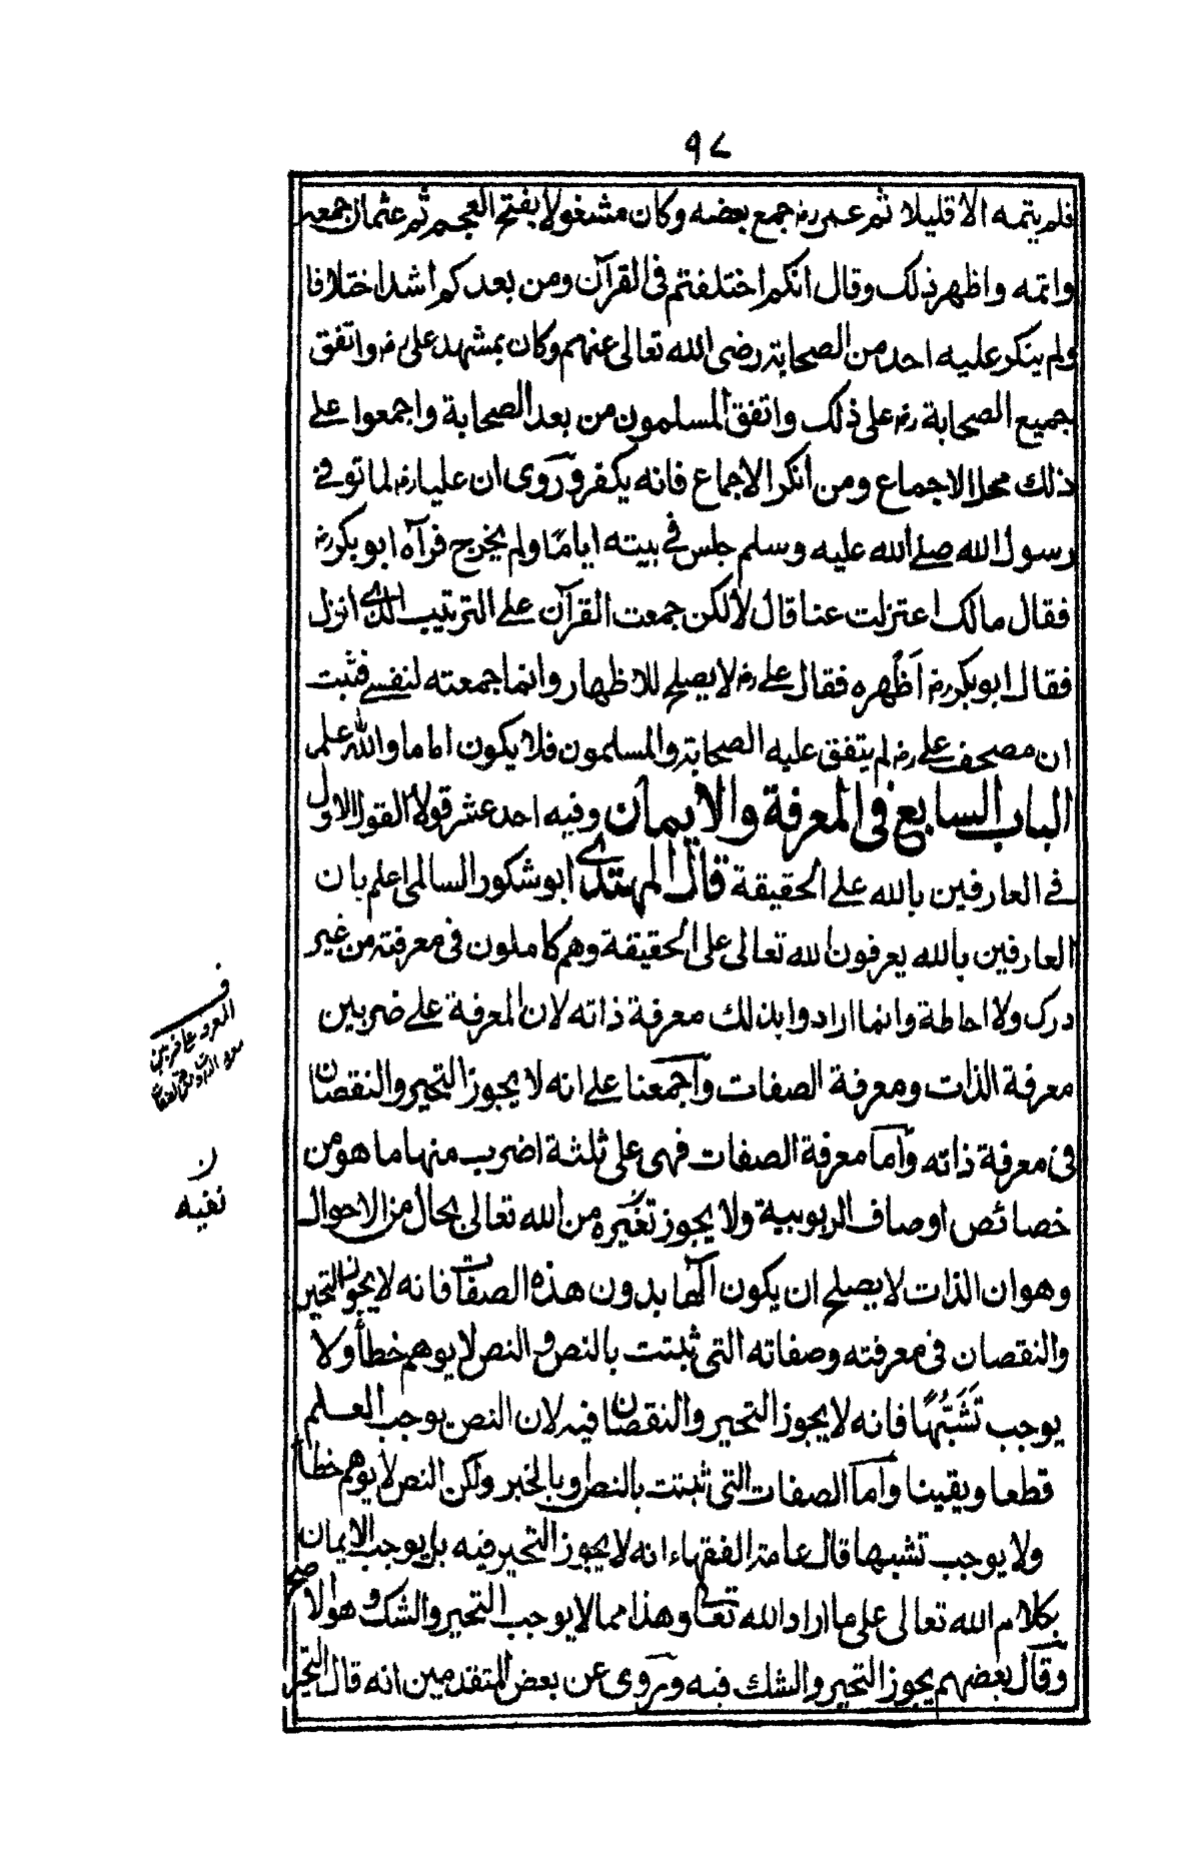 ٩٧
فلم يتمه الا قليلا ثم عمر رضـ جمع بعضه وكان مشغولا بفتح العجم ثم عثمان جمعه
واتمه واظهر ذلك وقال انكم اختلفتم فى القرآن ومن بعدكم اشد اختلافا
ولم ينكر عليه احد من الصحابة رضى الله تعالى عنهم وكان بمشهد على رضـ واتفق
جميع الصحابة رضـ على ذلك واتفق المسلمون من بعد الصحابة واجمعوا على
ذلك محل الاجماع ومن انكر الاجماع فانه يكفر وروى ان عليا رضـ لما توفى
رسول الله صلى الله عليه وسلم جلس فى بيته اياما ولم يخرج فرآه ابو بكر رضـ
فقال مالك اعتزلت عنا قال لا لكن جمعت القرآن على الترتيب الذى انزل
فقال ابو بكر رضـ اَظْهره فقال على رضـ لا يصلح للاظهار وانما جمعته لنفسى فثبت
ان مصحف على رضـ لم يتفق عليه الصحابة والمسلمون فلا يكون اماما والله علم
الباب السابع فى المعرفة والايمان وفيه احد عشر قولا القول الاول
فى العارفين بالله على الحقيقة قال المهتدى ابو شكور السالمى اعلم بان
العارفين بالله يعرفون الله تعالى على الحقيقة وهم كاملون فى معرفته من غير
درك ولا احاطة وانما ارادوا بذلك معرفة ذاته لان المعرفة على ضربين
معرفة الذات ومعرفة الصفات واجمعنا على انه لا يجوز التحير والنقصان
فى معرفة ذاته واما معرفة الصفات فهى على ثلثة اضرب منها ما هو من
خصائص اوصاف الربوبية ولا يجوز تغيّره من الله تعالى بحال من الاحوال
وهو ان الذات لا يصلح ان يكون آلها بدون هذه الصفات فانه لا يجوز التحير
والنقصان فى معرفته وصفاته التى ثبتت بالنص والنص لا يوهم خطأ ولا
يوجب تَشَبُّهًا فانه لا يجوز التحير والنقصان فيه لان النص يوجب العلم
قطعا ويقينا واما الصفات التى ثبتت بالنص وبالخبر ولكن النص لا يوهم خطأ
ولا يوجب تشبها قال عامة الفقهاء انه لا يجوز التحير فيه بل يوجب الايمان
بكلام الله تعالى على ما اراد الله تعالى وهذا مما لا يوجب التحير والشك وهو الاصح
وقال بعضهم يجوز التحير والشك فيه وروى عن بعض المتقدمين انه قال التحير
المعرفة على ضربين
معرفة الذات ومعرفة الصفات
ن
نفيه